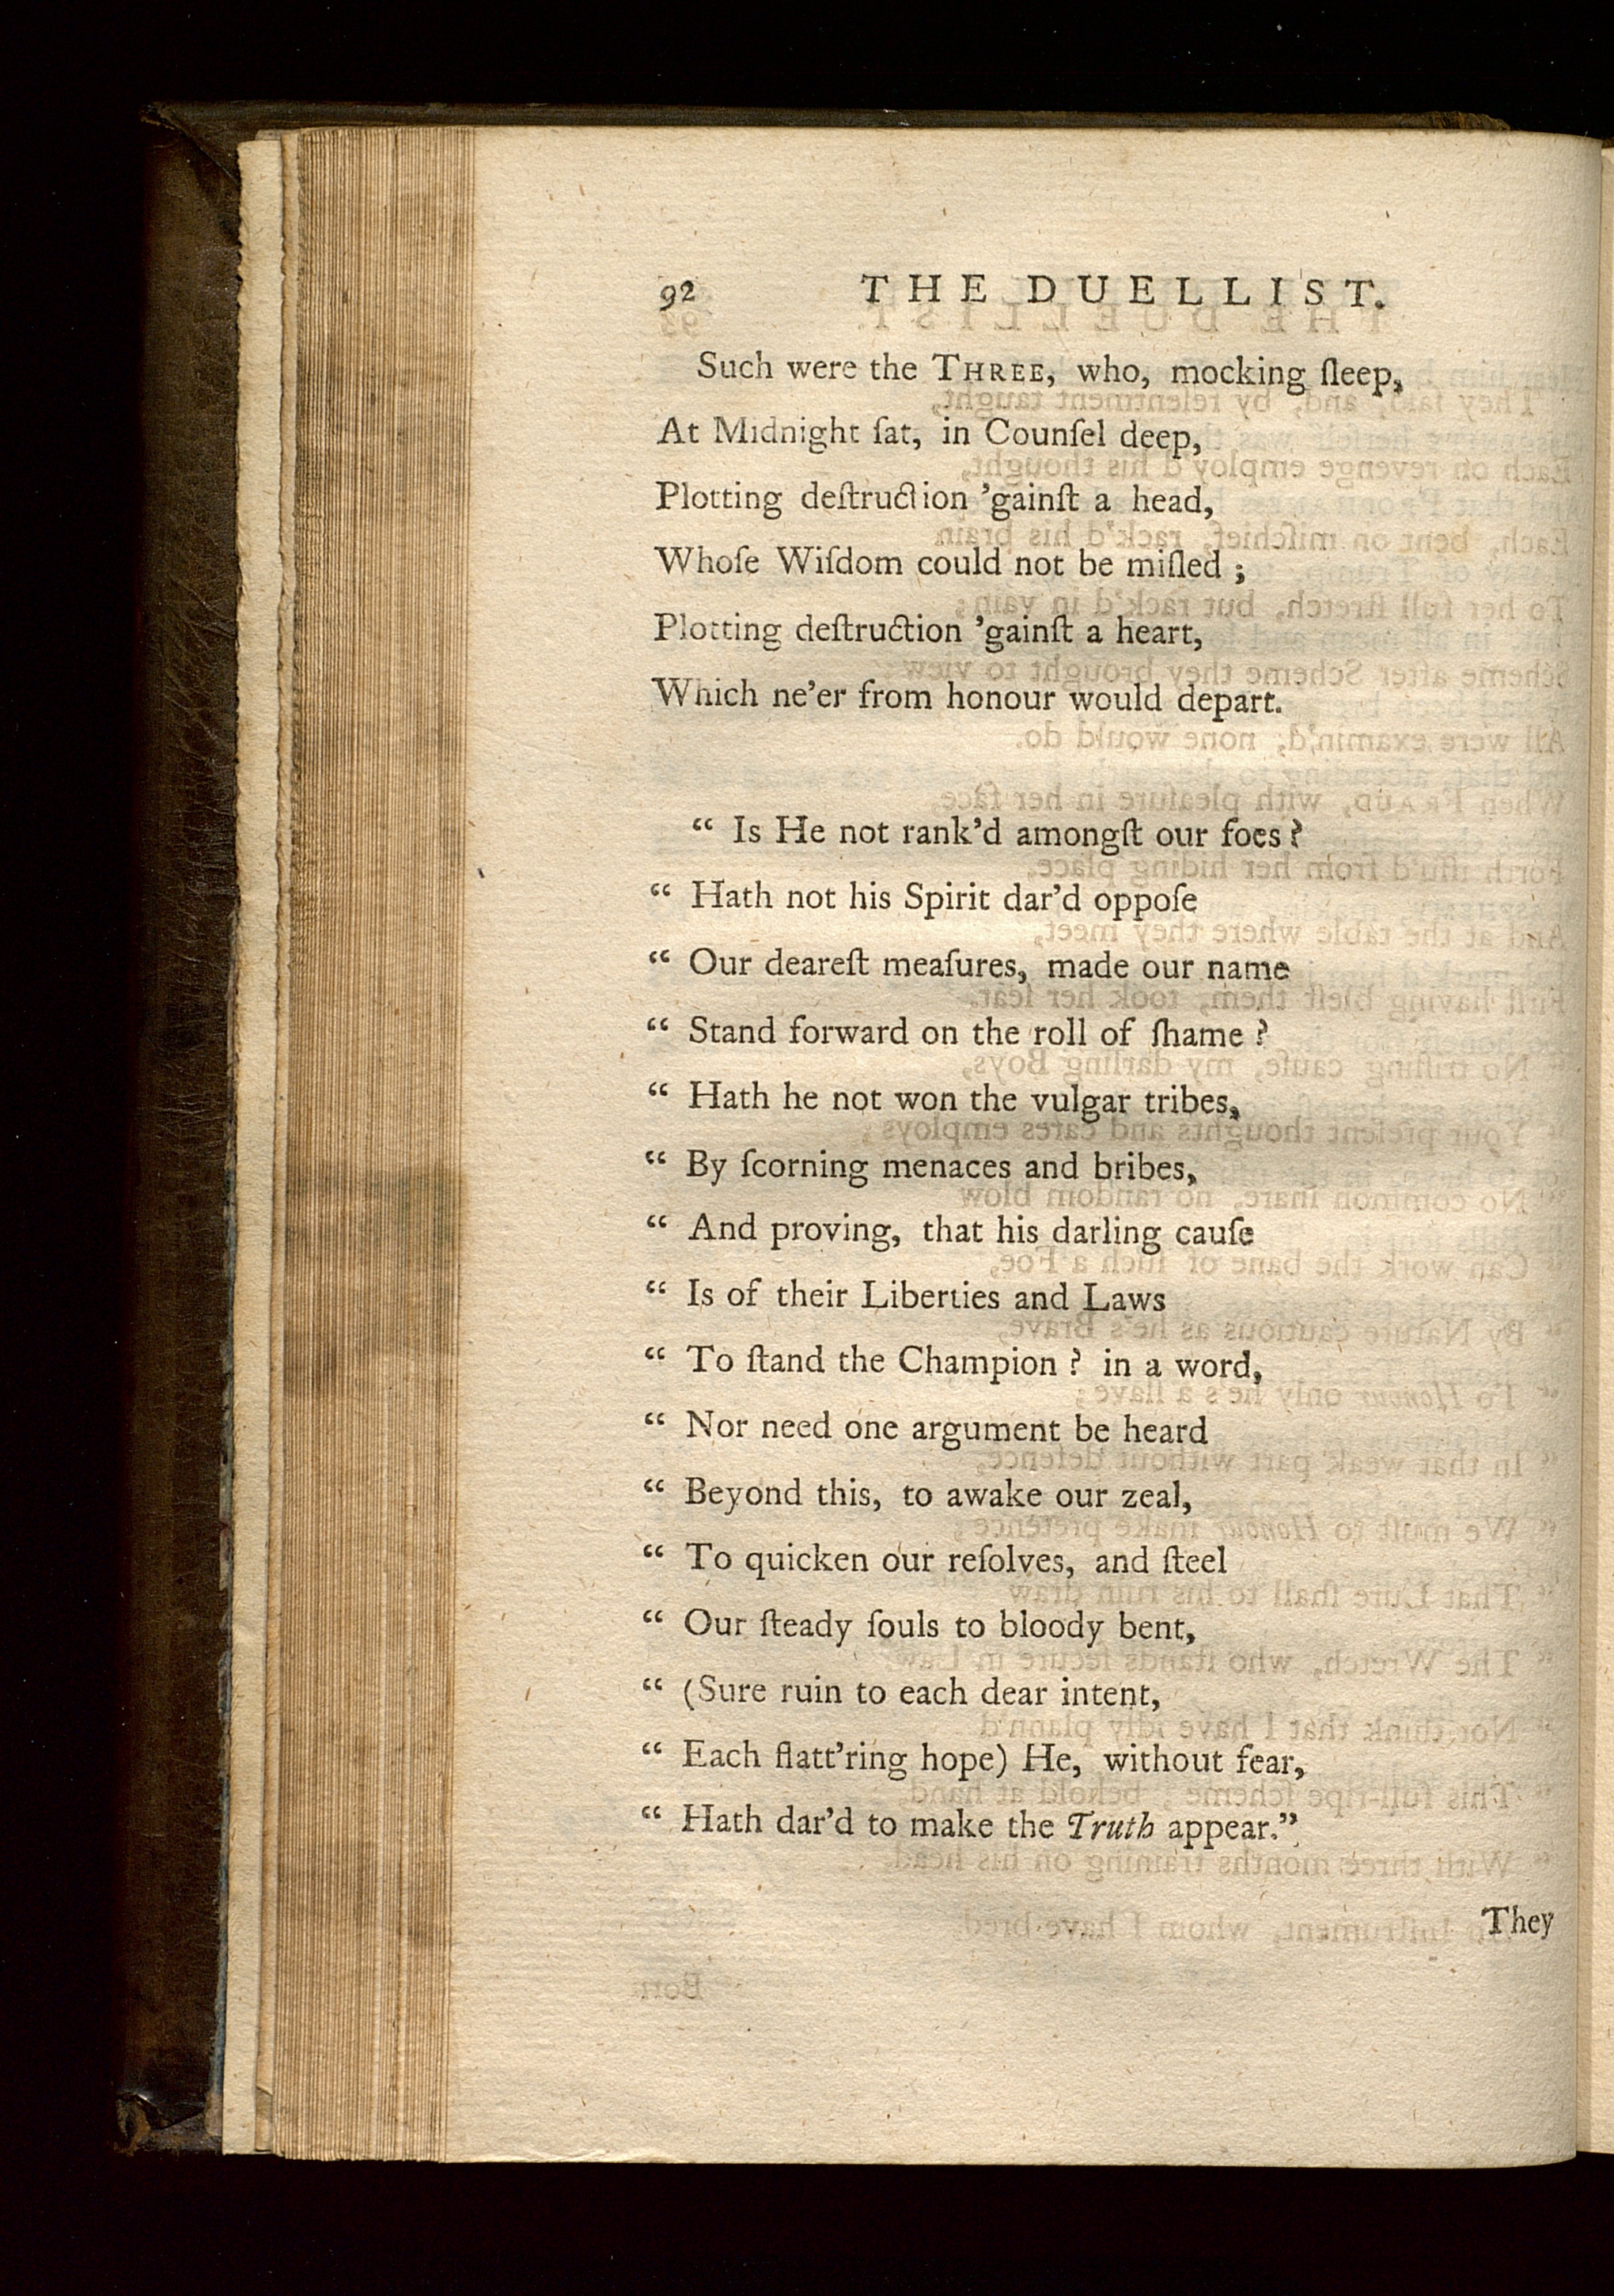 92 THE DUELLIST.
Such were the THREE, who, mocking ſleep,
At Midnight ſat, in Counſel deep,
Plotting deſtruction ’gainſt a head,
Whoſe Wiſdom could not be miſled ;
Plotting deſtruction ’gainſt a heart,
Which ne’er from honour would depart.
“ Is He not rank’d amongſt our foes ?
“ Hath not his Spirit dar’d oppoſe
“ Our deareſt meaſures, made our name
“ Stand forward on the roll of ſhame ?
“ Hath he not won the vulgar tribes,
“ By ſcorning menaces and bribes,
“ And proving, that his darling cauſe
“ Is of their Liberties and Laws
“ To ſtand the Champion ? in a word,
“ Nor need one argument be heard
“ Beyond this, to awake our zeal,
“ To quicken our reſolves, and ſteel
“ Our ſteady ſouls to bloody bent,
“ (Sure ruin to each dear intent,
“ Each flatt’ring hope) He, without fear,
“ Hath dar’d to make the Truth appear.”
They